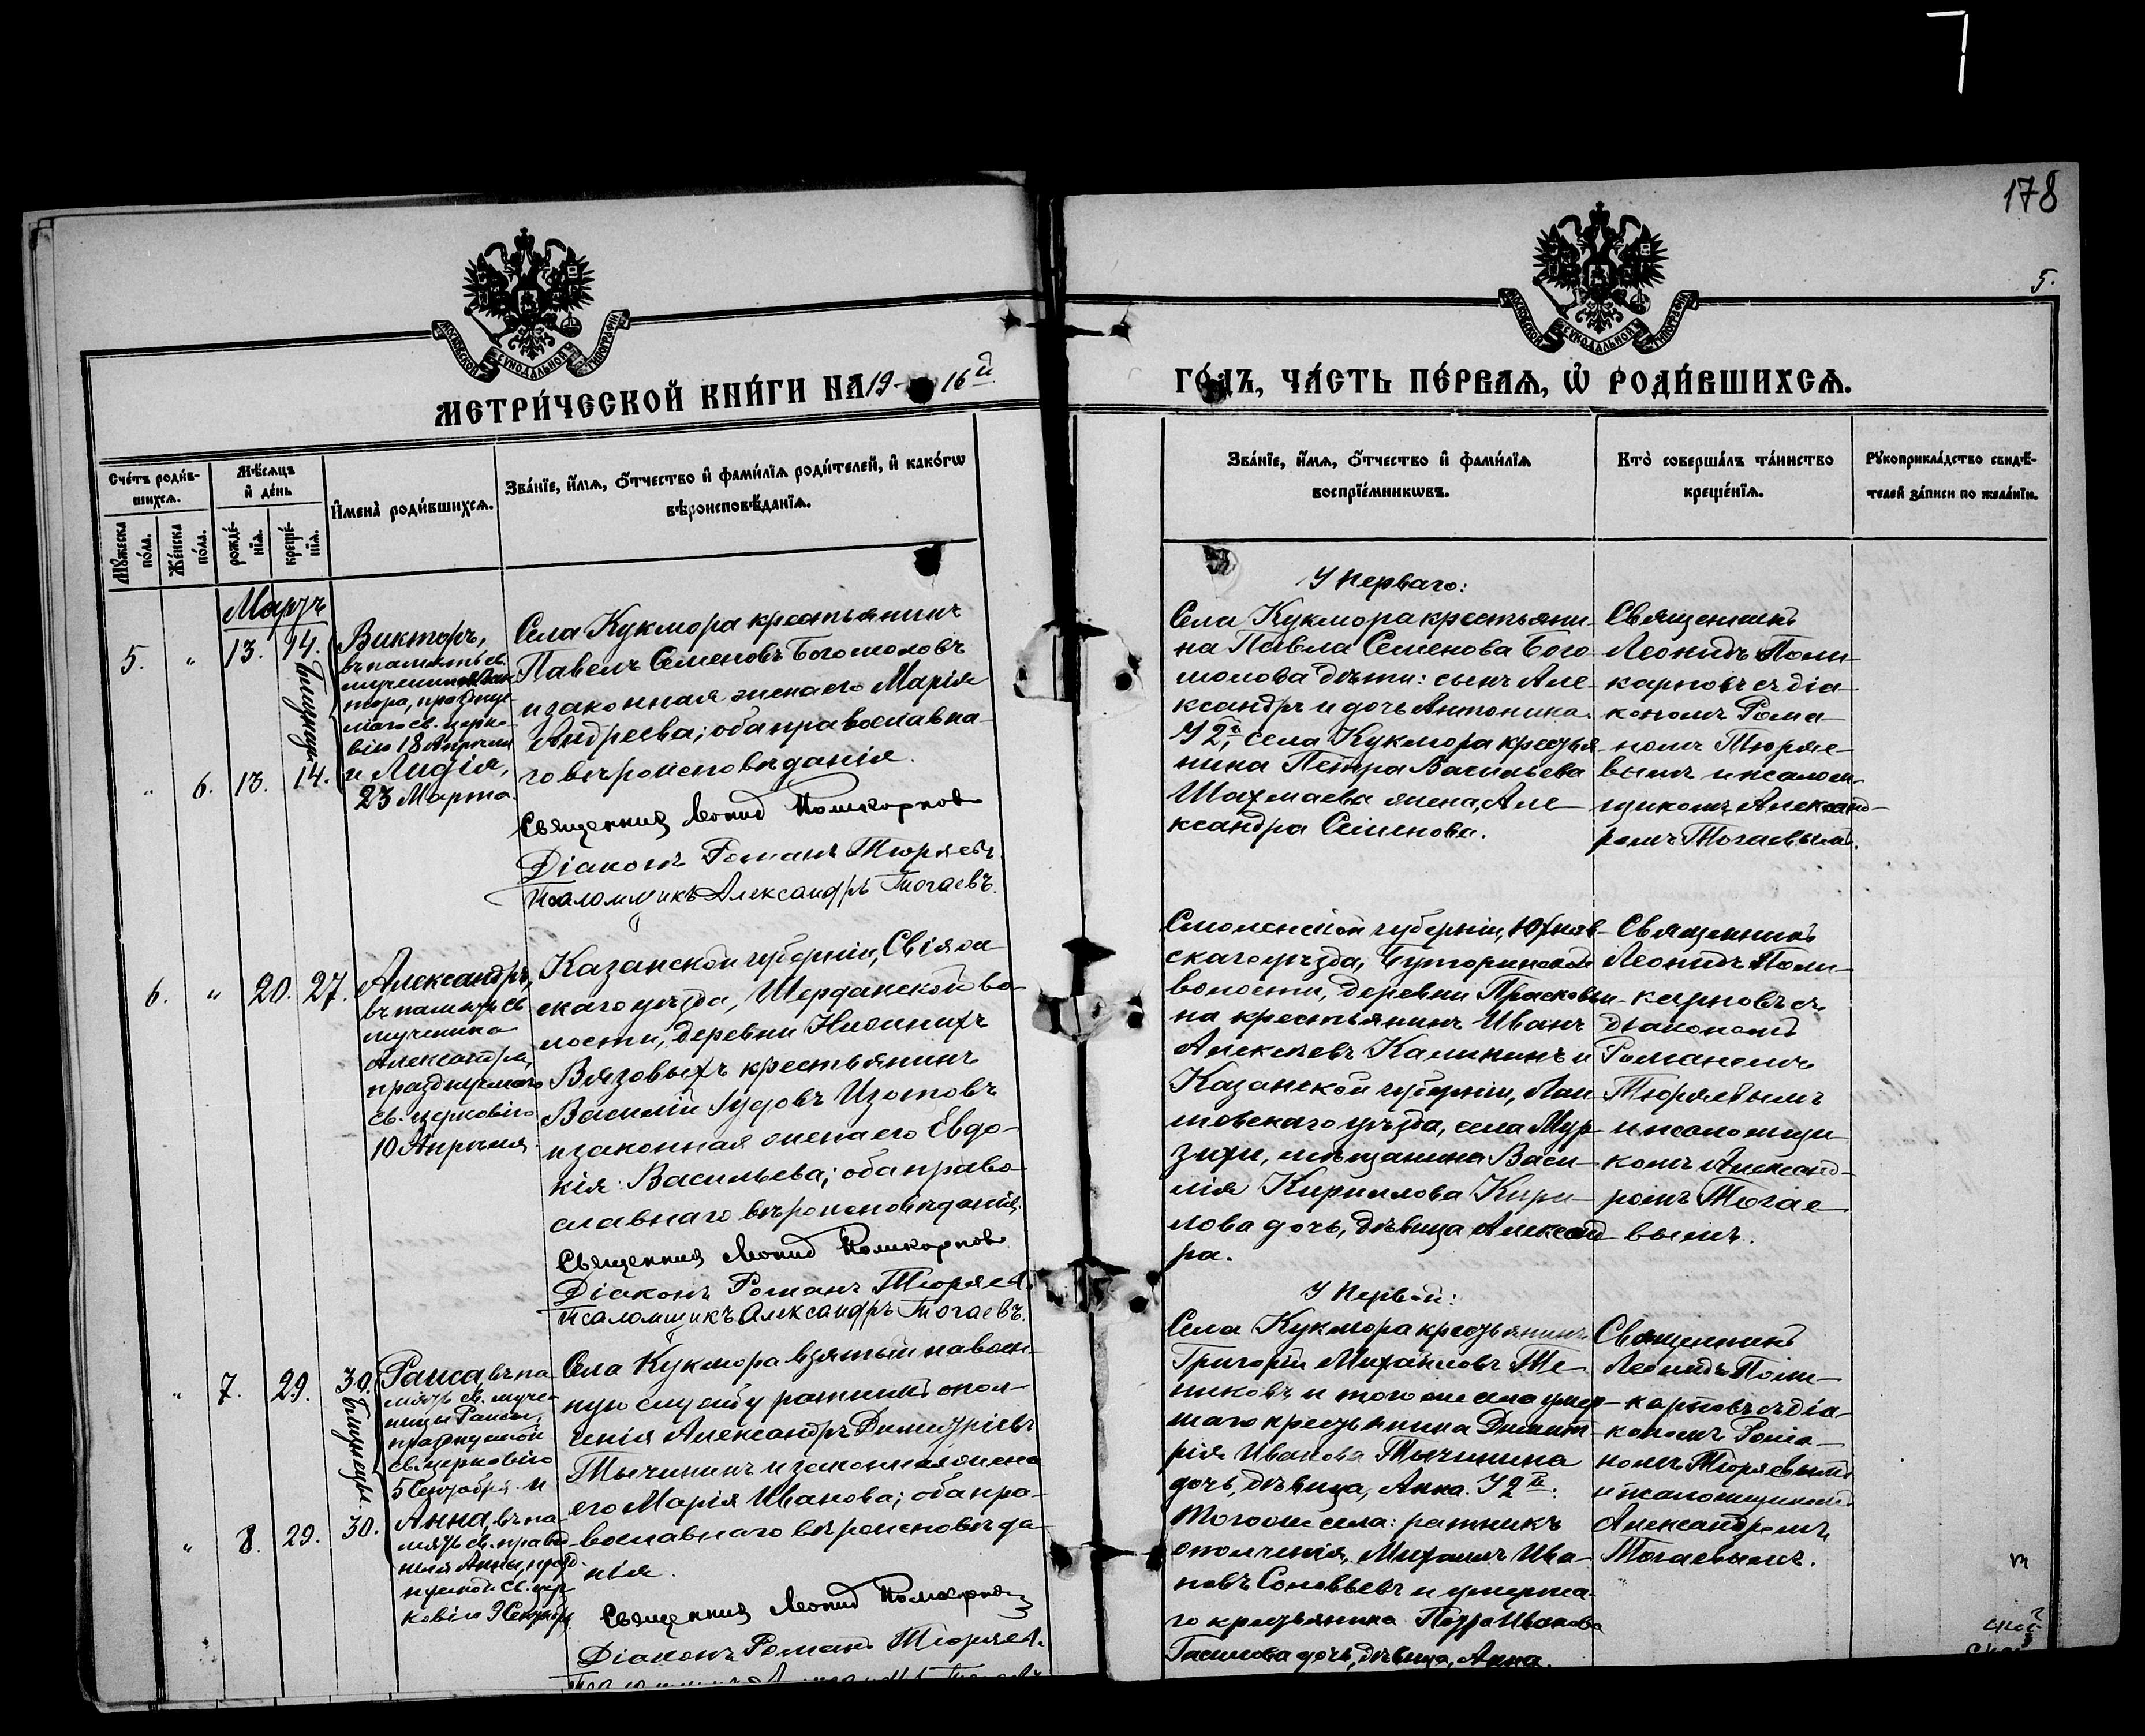 178
5.
МОСКОВСКОЙ СѴНОДАЛЬНОЙ ТИПОГРАФІИ
МОСКОВСКОЙ СѴНОДАЛЬНОЙ ТИПОГРАФІИ
МЕТРИ́ЧЕСКОЙ КНИ́ГИ НА 19 16й
ГО́ДЪ, ЧА́СТЬ ПЕ́РВАѦ, Ѡ҆ РОДИ́ВШИХСѦ.
Сче́тъ роди́в-
шихсѧ.
Мꙋ́жеска по́ла.
Же́нска по́ла.
Мѣ́сѧцъ
и҆ де́нь
рожде́-
нїѧ.
креще́-
нїѧ.
И҆мена̀ роди́вшихсѧ.
Зва́нїе, и҆́мѧ, ѻ҆́тчество и҆ фами́лїѧ роди́телей, и҆ како́гѡ
вѣ́роисповѣ́данїѧ.
Зва́нїе, и҆́мѧ, ѻ҆́тчество и҆ фами́лїѧ
воспрїе́мникѡвъ.
Кто̀ соверша́лъ та́инство
креще́нїѧ.
Рꙋкоприкла́дство свидѣ́-
телей за́писи по жела́нїю.
Мартъ
5. " 13. 14.
Близнецы
" 6. 13. 14.
Викторъ,
въ память св.
мученика Вик-
тора, празднуе-
маго св. церко-
вію 18 Апрѣля
и Лидія,
23 Марта.
Села Кукмора крестьянинъ
Павелъ Семеновъ Богомоловъ
и законная жена его Марія
Андреева; оба православна-
го вѣроисповѣданія.
Священникъ Леонид Поликарповъ
Діаконъ Романъ Тюряевъ.
Псаломщикъ Александръ Тогаевъ.
У перваго:
Села Кукмора крестьяни-
на Павла Семенова Бого-
молова дѣти: сынъ Але-
ксандръ и дочь Антонина.
У 2й, села Кукмора крестья-
нина Петра Васильева
Шахмаева жена, Але-
ксандра Семенова.
Священникъ
Леонидъ Поли-
карповъ съ діа-
кономъ Рома-
номъ Тюряе-
вымъ и псалом-
щикомъ Александ-
ромъ Тогаевымъ.
6. " 20. 27.
Александръ,
въ память св.
мученика
Александра,
празднуемаго
св. церковію
10 Апрѣля.
Казанской губерніи, Свіяж-
скаго уѣзда, Шерданской во-
лости, деревни Нижнихъ
Вязовыхъ крестьянинъ
Василій Іудовъ Изотовъ
и законная жена его Евдо-
кія Васильева; оба право-
славнаго вѣроисповѣданія.
Священникъ Леонид Поликарповъ
Діаконъ Романъ Тюряевъ.
Псаломщикъ Александръ Тогаевъ.
Смоленской губерніи, Юхнов-
скаго уѣзда, Буторинской
волости, деревни Прасковьи-
на крестьянинъ Иванъ
Алексѣевъ Калининъ и
Казанской губерніи, Лаи-
шевскаго уѣзда, села Мур-
зихи, мѣщанина Васи-
лія Кириллова Кири-
лова дочь, дѣвица Александ-
ра.
Священникъ
Леонидъ Поли-
карповъ съ
діакономъ
Романомъ
Тюряевымъ
и псаломщи-
комъ Александ-
ромъ Тогае-
вымъ.
" 7. 29. 30.
Близнецы.
" 8. 29. 30.
Раиса, въ па-
мять св. муче-
ницы Раисы,
празднуемой
св. церковію
5 Сентября и
Анна, въ па-
мять св. правед-
ныя Анны, празд-
нуемой св. цер-
ковію 9 Сентября
Села Кукмора взятый на воен-
ную службу ратникъ опол-
ченія Александръ Димитріевъ
Тычининъ и законная жена
его Марія Иванова; оба пра-
вославнаго вѣроисповѣда-
нія.
Священникъ Леонид Поликарповъ
Діаконъ Романъ Тюряевъ.
У первой:
Села Кукмора крестьянинъ
Григорій Михайловъ
и того же села умер-
шаго крестьянина Димит-
рія Иванова Тычинина
дочь, дѣвица, Анна. У 2й:
Того же села: ратникъ
ополченія, Михаилъ Ива-
новъ Соловьевъ и умерша-
го крестьянина Петра Иванова
дочь, дѣвица, Анна.
Священникъ
Леонидъ Поли-
карповъ съ діа-
кономъ Рома-
номъ Тюряевымъ
и псаломщикомъ
Александромъ
Тогаевымъ.